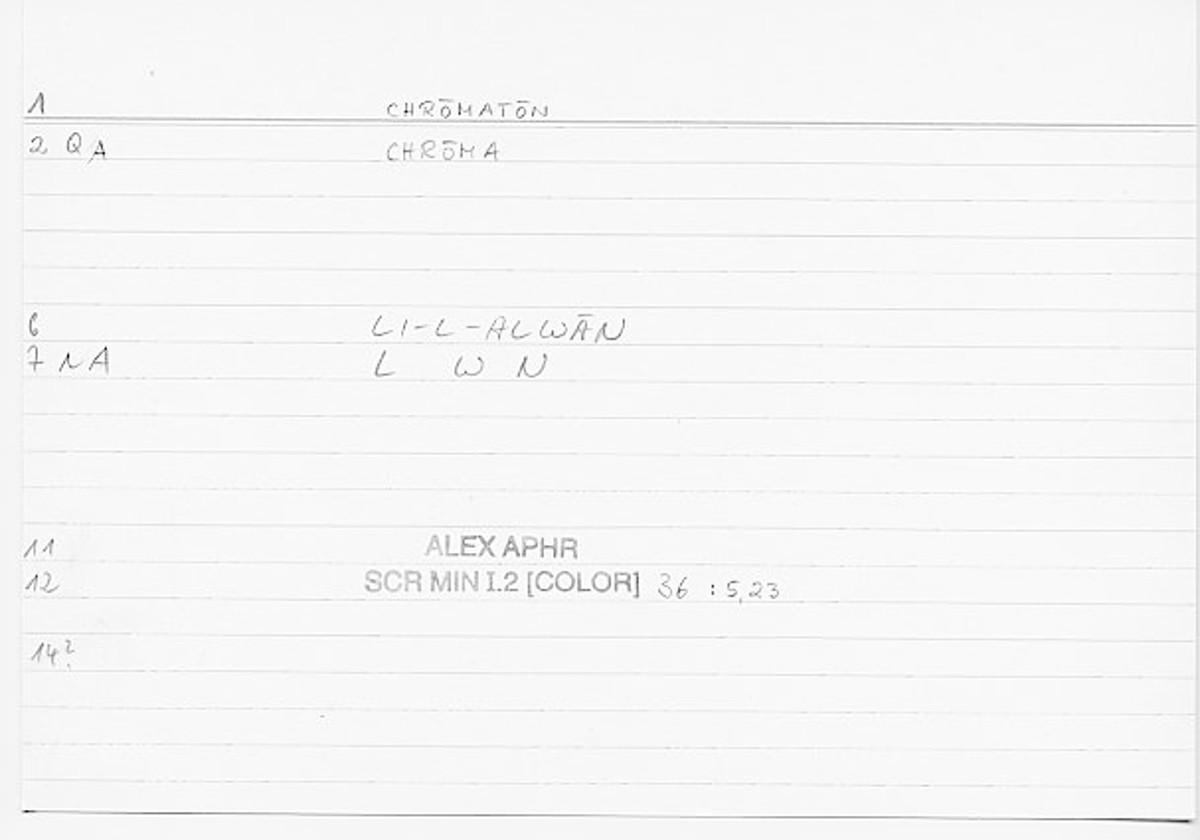 1 CHRŌMATŌN
2 QA CHRŌMA
6 LI-L-ALWĀN
7 NA L W N
11 ALEX APHR
12 SCR MIN I.2 [COLOR] 36 : 5,23
14?